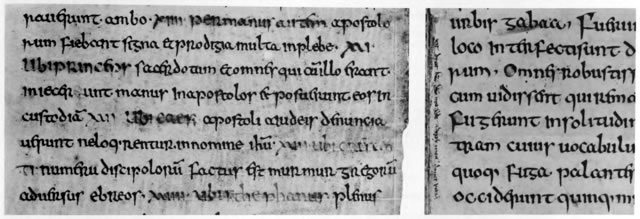 rauerunt ambo · xiiii per manus autem apostolo
rum fiebant signa et prodigia multa in plebe · xvi
Ubi princeps sacerdotum et omnes qui cū illo erant
iniecerunt manus in apostolos et posuerunt eos in
custodiā xvii Ubi apostoli a iudeis denuncia
uerunt ne loquerentur in nomine ihū xviii ubi
ti numerū discipolorū factus est murmur grecorum
aduersus ebreos · xviiii Ubi stephanus plenus
urbis gabaa, Fuerun
loco interfecti sunt d
rum · Omnes robustiss
cum uidissent qui rema
Fugerunt in solitudin
tram cuius uocabulu
quoq· fuga palanth
occiderunt quinq· m